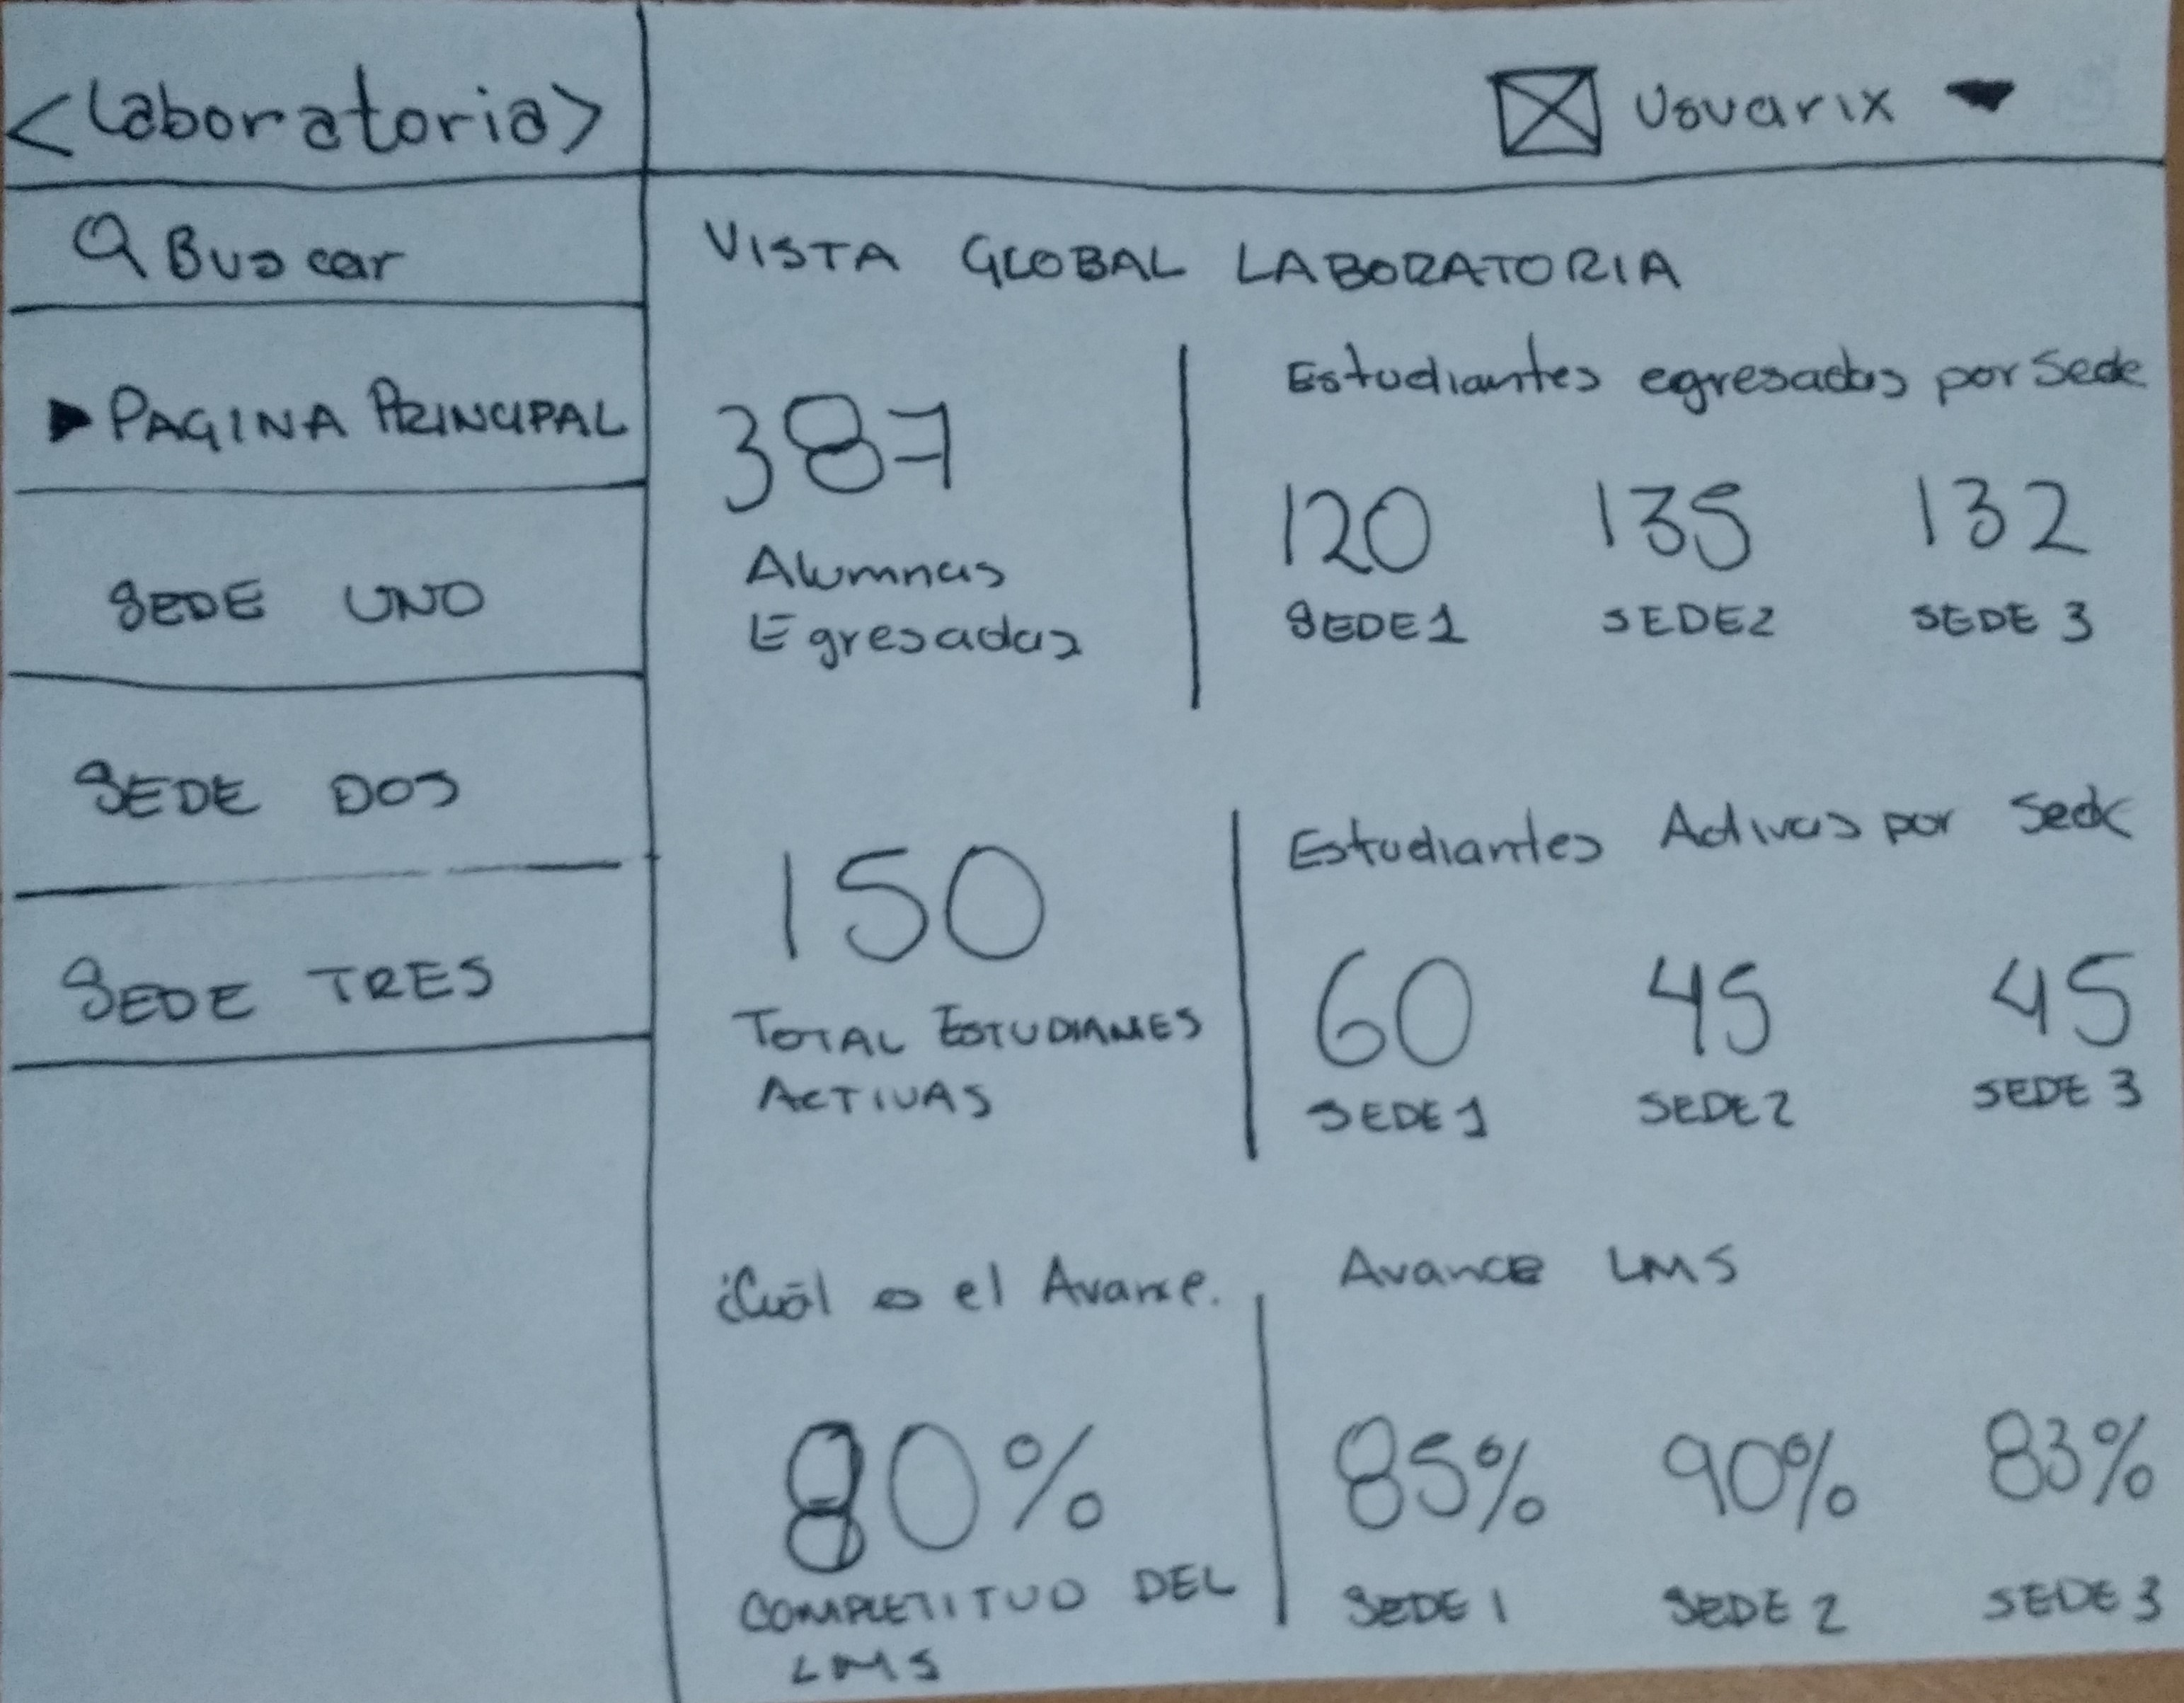 <Laboratoria>
Usuarix
Buscar
PAGINA PRINCIPAL
SEDE UNO
SEDE DOS
SEDE TRES
VISTA GLOBAL LABORATORIA
387
Alumnas
Egresadas
Estudiantes egresados por Sede
120 135 132
SEDE 1 SEDE 2 SEDE 3
150
TOTAL ESTUDIANTES
ACTIVAS
Estudiantes Activas por Sede
60 45 45
SEDE 1 SEDE 2 SEDE 3
¿Cuál es el Avance.
80%
COMPLETITUD DEL
LMS
Avance LMS
85% 90% 83%
SEDE 1 SEDE 2 SEDE 3